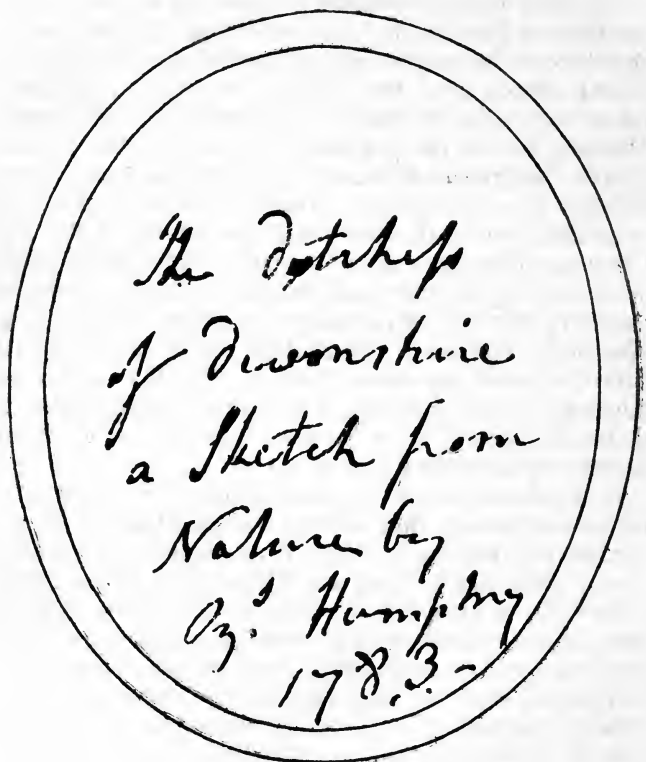 The dutchess
of devonshire
a Sketch from
Nature by
Ozs. Humphry
1783.-